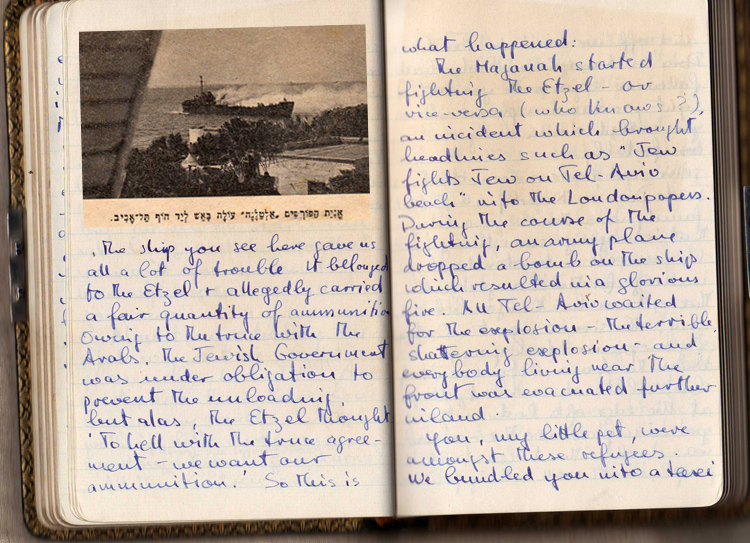 אֳנִיַּת הַפּוֹרְשִׁים „אַלְטַלֶנָה” עוֹלָה בָּאֵשׁ לְיַד חוֹף תֵּל־אָבִיב.
The ship you see here gave us
all a lot of trouble it belonged
to the Etzel & allegedly carried
a fair quantity of ammunition
Owing to the truce with the
Arabs, the Jewish Government
was under obligation to
prevent the unloading,
but alas, the Etzel thought
'To hell with the truce agree-
ment - we want our
ammunition.' So this is
what happened:
The Haganah started
fighting the Etzel - or
vice-versa (who knows?),
an incident which brought
headlines such as "Jew
fights Jew on Tel-Aviv
beach" into the London papers.
During the course of the
fighting, an army plane
dropped a bomb on the ship
which resulted in a glorious
fire. All Tel-Aviv waited
for the explosion - the terrible,
shattering explosion - and
everybody living near the
front was evacuated further
inland.
You, my little pet, were
amongst these refugees.
We bundled you into a taxi